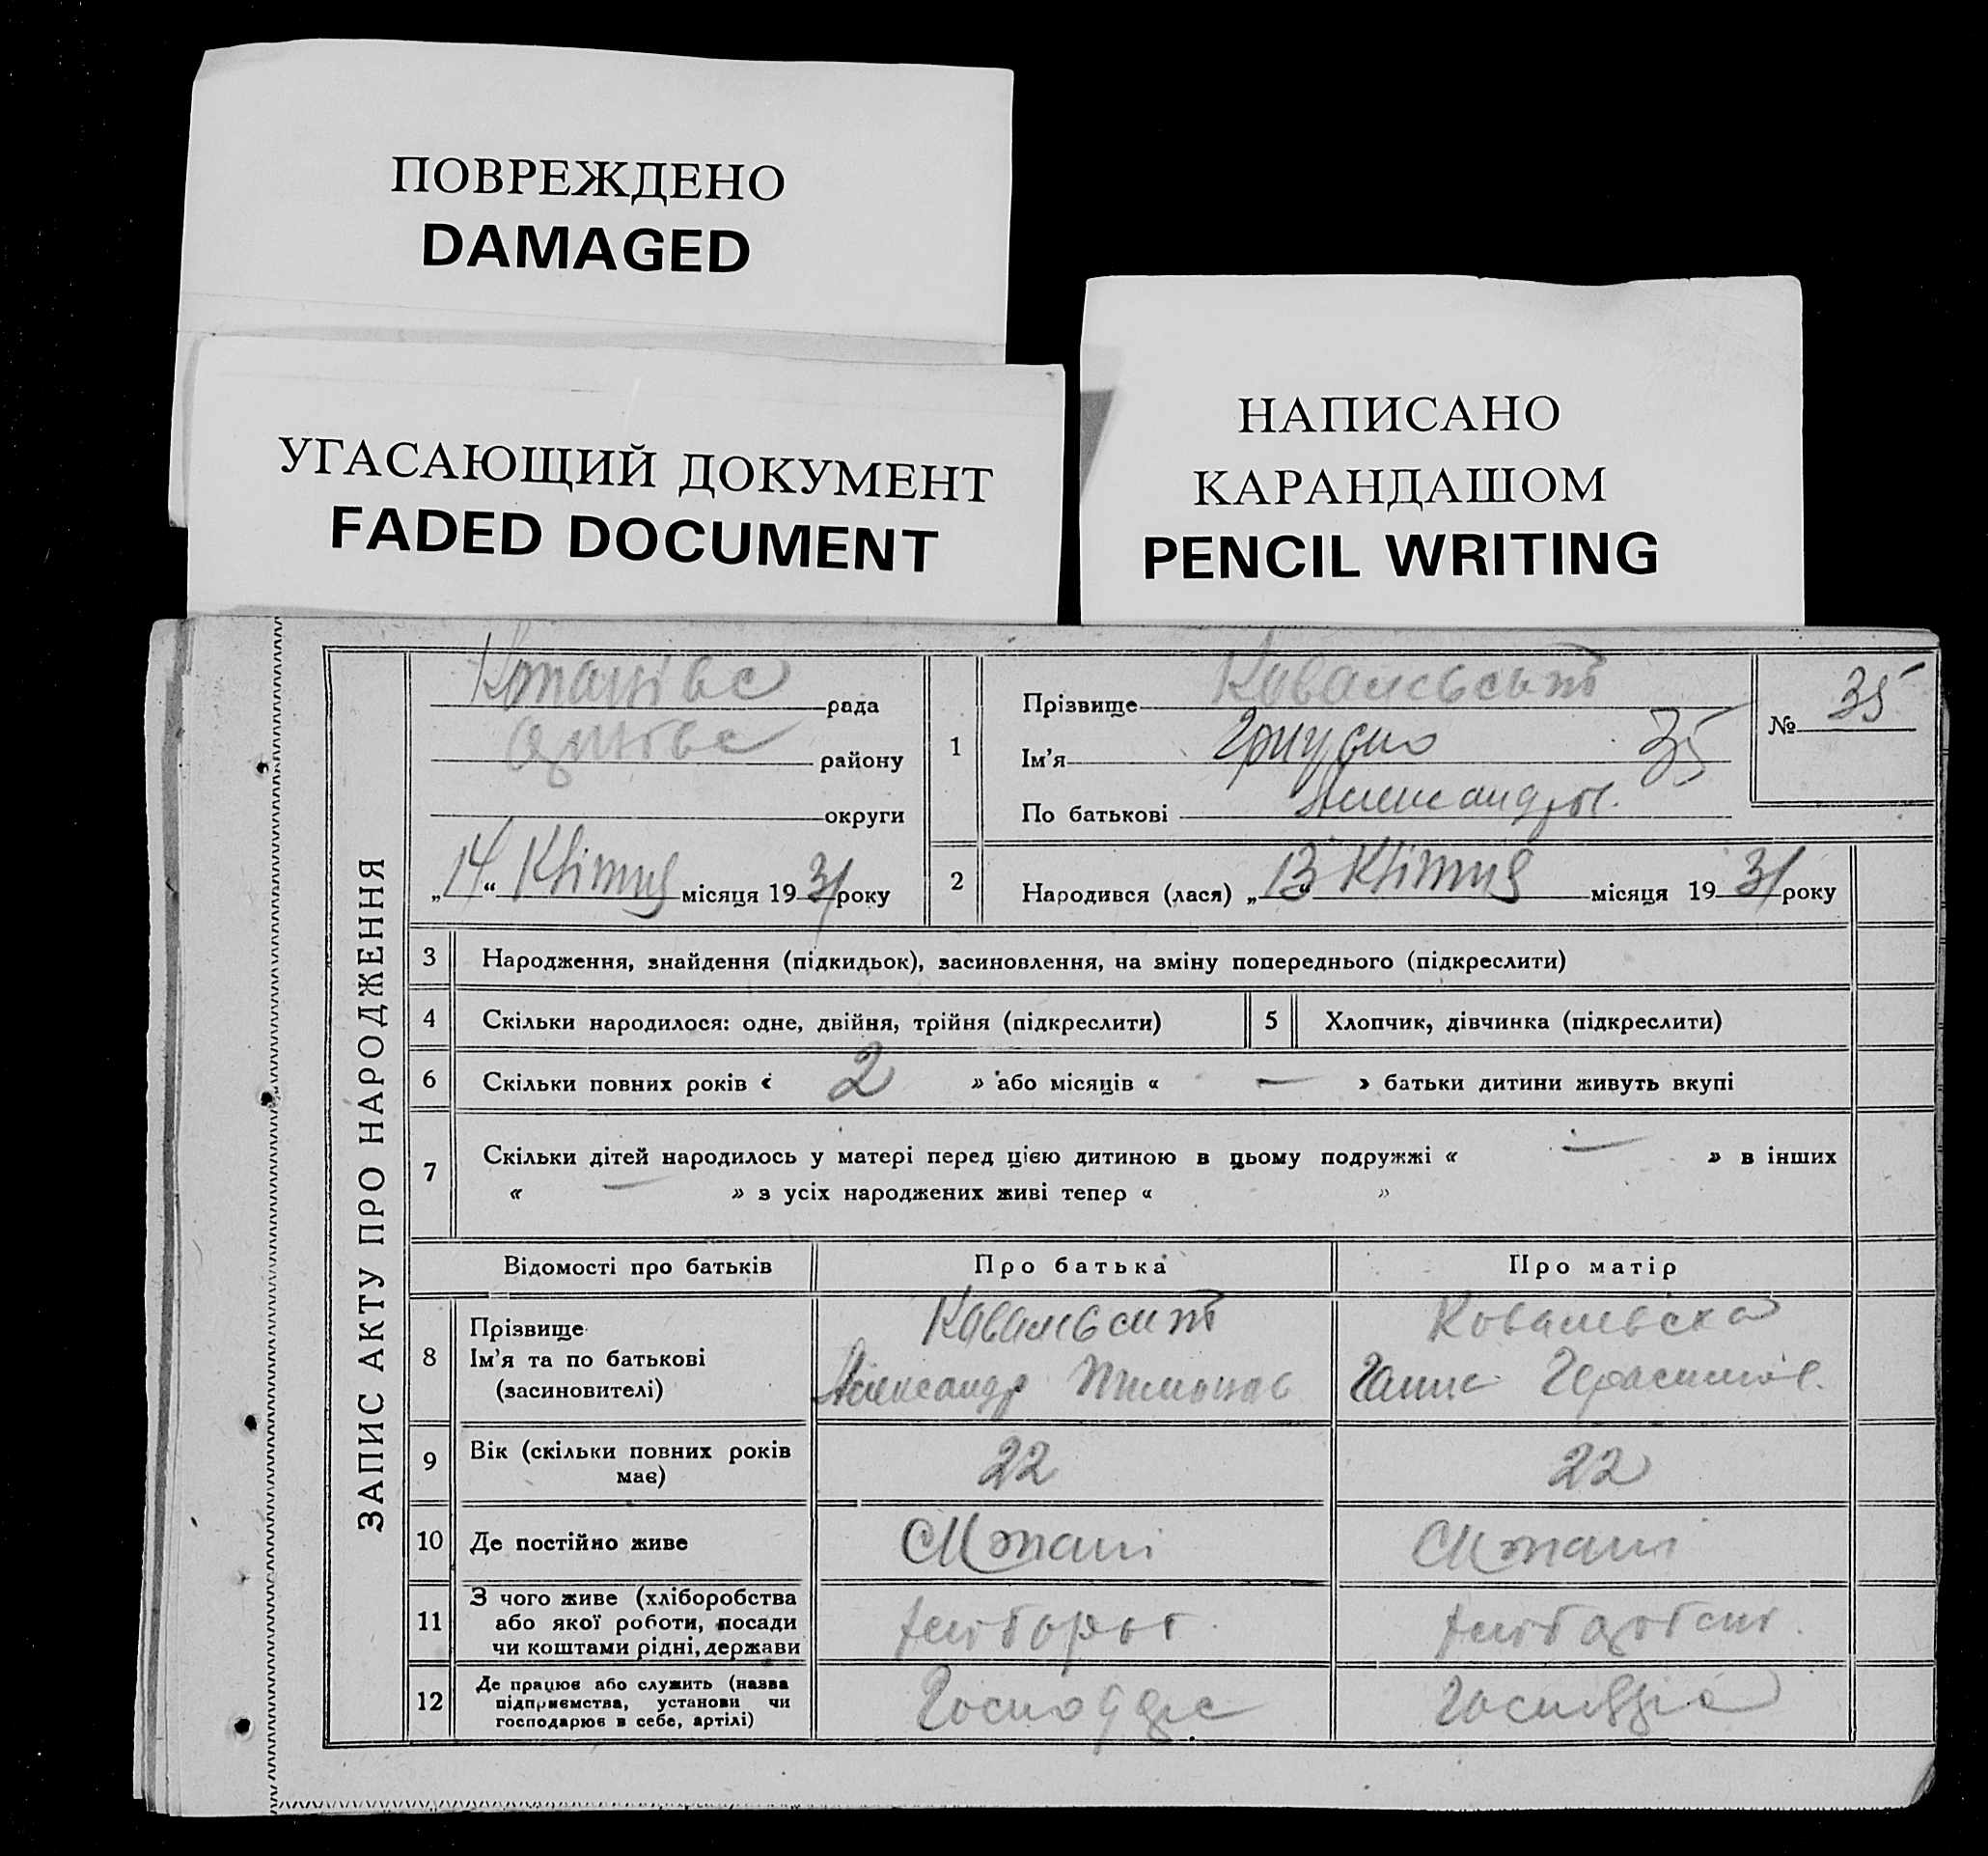 ПОВРЕЖДЕНО
DAMAGED
УГАСАЮЩИЙ ДОКУМЕНТ
FADED DOCUMENT
НАПИСАНО
КАРАНДАШОМ
PENCIL WRITING
ЗАПИС АКТУ ПРО НАРОДЖЕННЯ
рада
району
округи
„14“ Квітня місяця 1931 року
1
Прізвище Ковальський
Ім'я 35
По батькові Александров.
№ 35
2
Народився (лася) „13“ Квітня місяця 1931 року
3 Народження, знайдення (підкидьок), засиновлення, на зміну попереднього (підкреслити)
4 Скільки народилося: одне, двійня, трійня (підкреслити)
5 Хлопчик, дівчинка (підкреслити)
6 Скільки повних років « 2 » або місяців « — » батьки дитини живуть вкупі
7 Скільки дітей народилось у матері перед цією дитиною в цьому подружжі « — » в інших
« — » з усіх народжених живі тепер « »
Відомості про батьків Про батька Про матір
8 Прізвище
Ім'я та по батькові
(засиновителі)
Ковальський
Александр
Ковальська
Ганна Герасимов.
9 Вік (скільки повних років
має)
22
22
10 Де постійно живе
11 З чого живе (хліборобства
або якої роботи, посади
чи коштами рідні, держави
12 Де працює або служить (назва
підприємства, установи чи
господарює в себе, артілі)